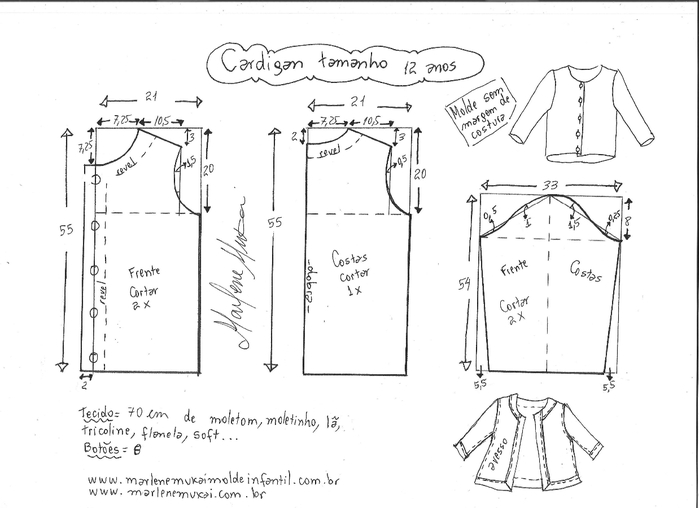 Cardigan tamanho 12 anos
Molde sem
margem de
costura
21
7,25
10,5
7,25
3
1,5
20
55
revel
Frente
Cortar
2x
revel
2
Marlene Mukai
21
7,25
10,5
2
3
1,5
20
55
revel
Costas
cortar
1x
dobra
33
0,5
1
1,5
0,5
8
54
Frente
Costas
Cortar
2x
5,5
5,5
avesso
Tecido= 70 cm de moletom, moletinho, lã,
tricoline, flanela, soft...
Botões= 8
www.marlenemukaimoldeinfantil.com.br
www.marlenemukai.com.br